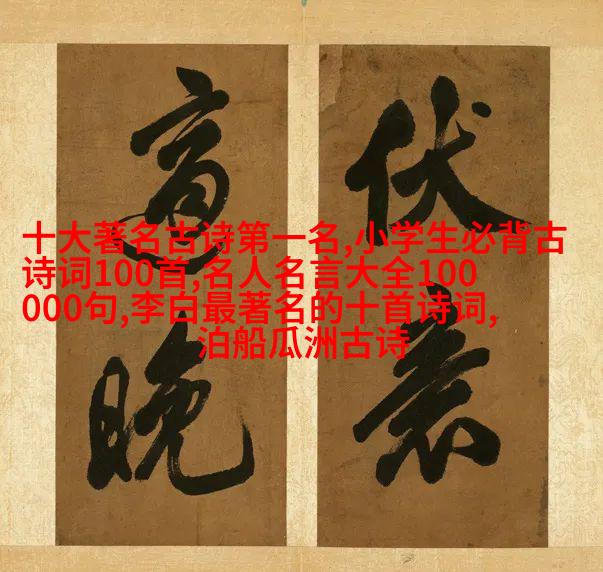 十大著名古诗第一名,小学生必背古
诗词100首,名人名言大全100
000句,李白最著名的十首诗词,
泊船瓜洲古诗
伏
晚